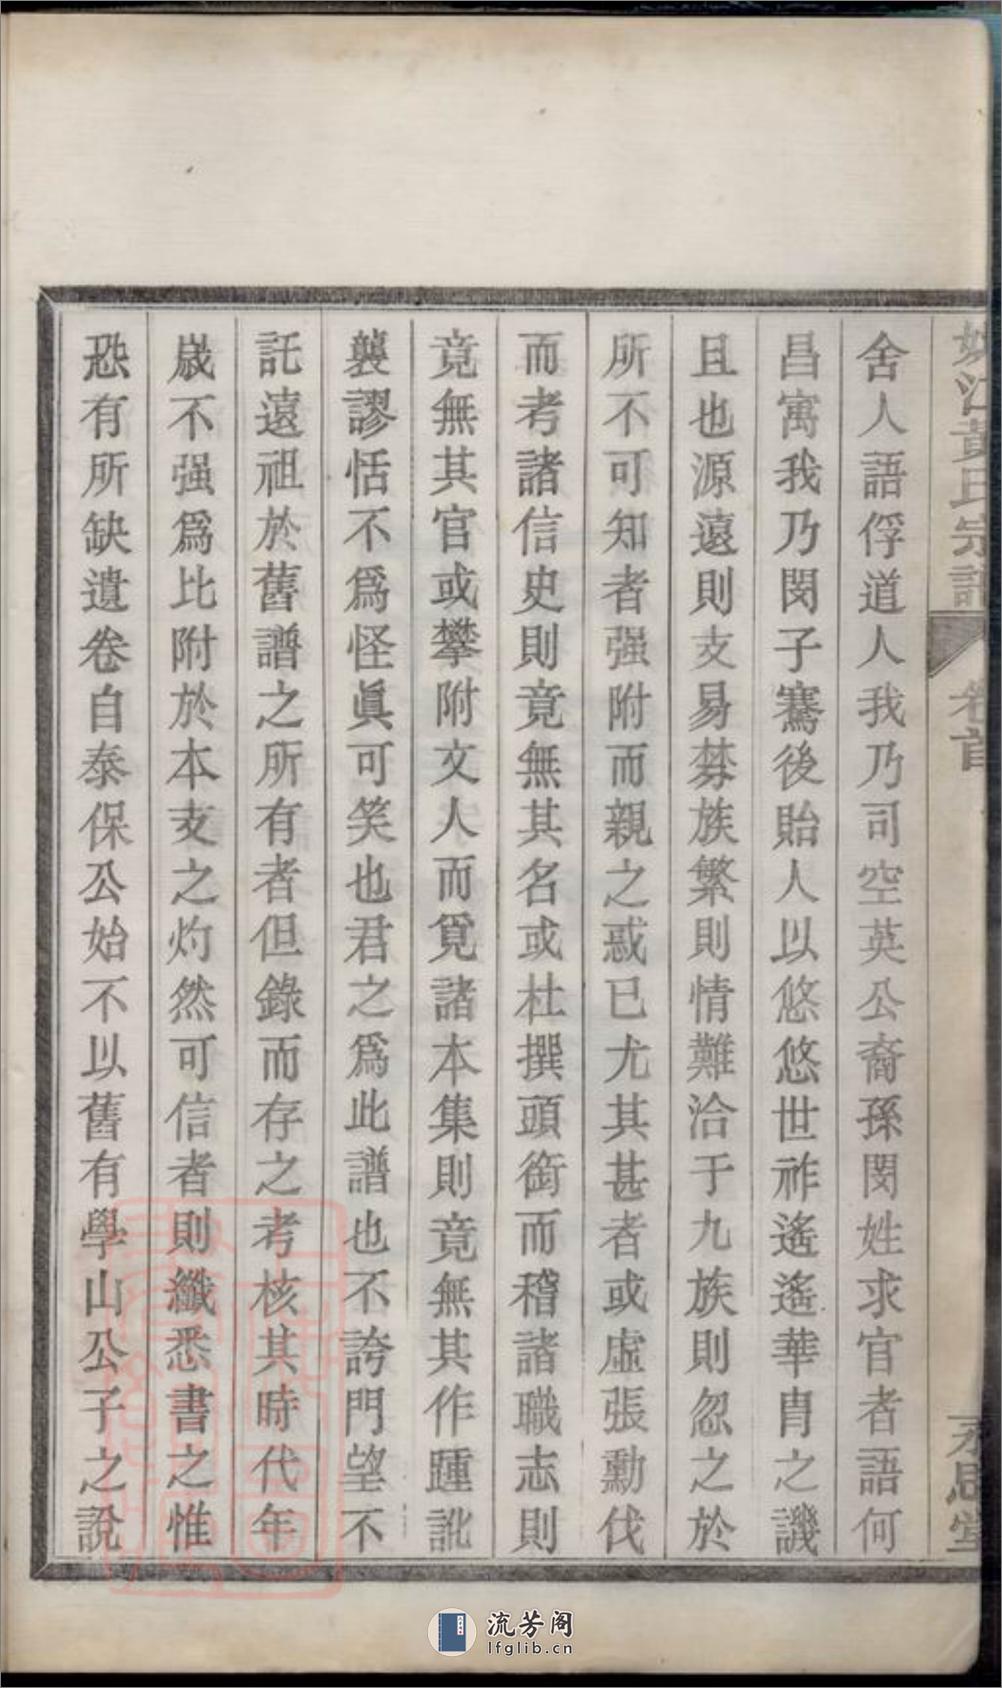 姚江黃氏宗譜 卷首 永思堂
舍人語俘道人我乃司空英公裔孫閔姓求官者語何
昌寓我乃閔子騫後貽人以悠悠世祚遙遙華胄之譏
且也源遠則支易棼族繁則情難洽于九族則忽之於
所不可知者强附而親之惑已尤其甚者或虛張勳伐
而考諸信史則竟無其名或杜撰頭銜而稽諸職志則
竟無其官或攀附文人而覓諸本集則竟無其作踵訛
襲謬恬不爲怪眞可笑也君之爲此譜也不誇門望不
託遠祖於舊譜之所有者但錄而存之考核其時代年
嵗不强爲比附於本支之灼然可信者則纖悉書之惟
恐有所缺遺卷自泰保公始不以舊有學山公子之說
流芳阁
lfglib.cn